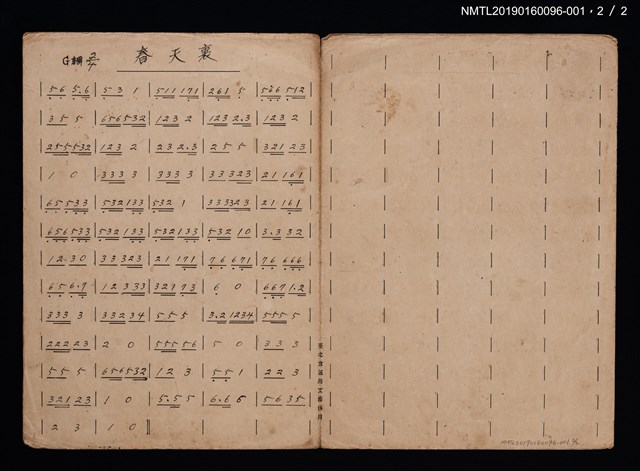 NMTL20190160096-001，2 / 2
G調 2/4 春天裏
| 5 6 5.6 | 5 3 1 | 5 1 1 1 7 1 | 2 6 1 5 | 5 6 6 5 1 2
| 3 5 5 | 6 5 6 5 3 2 | 1 2 3 2 | 1 2 3 2.3 | 1 2 3 2
| 2 5 5 5 3 2 | 1 2 3 2 | 2 3 2.3 | 2 5 5 | 3 2 1 2 3
| 1 0 | 3 3 3 3 | 3 3 3 3 | 3 3 3 2 3 | 2 1 1 6 1 |
| 6 5 5 3 3 | 5 3 2 1 3 3 | 5 3 2 1 | 3 3 3 2 3 | 2 1 1 6 1 |
| 6 5 6 5 3 3 | 5 3 2 1 3 3 | 5 3 2 1 3 3 | 5 3 2 1 0 | 3.3 3 2 |
| 1 2 3 0 | 3 3 3 2 3 | 2 1 1 7 1 | 7 6 6 7 1 | 7 6 6 6 6 |
| 6 5 6.7 | 1 2 3 3 3 | 3 2 1 7 3 | 6 0 | 6 6 7 1.2 |
| 3 3 3 3 | 3 3 2 3 4 | 5 5 5 | 3.2 1 2 3 4 | 5 5 5 5 |
| 2 2 2 2 3 | 2 0 | 5 5 5 5 6 | 5 0 | 3 3 3 |
| 5 5 5 | 6 5 6 5 3 2 | 1 2 3 | 5 5 1 | 2 2 3 |
| 3 2 1 2 3 | 1 0 | 5.5 5 | 6.6 6 | 5 6 3 5 |
| 2 3 | 1 0 ||
NMTL20190160096-001 2/2